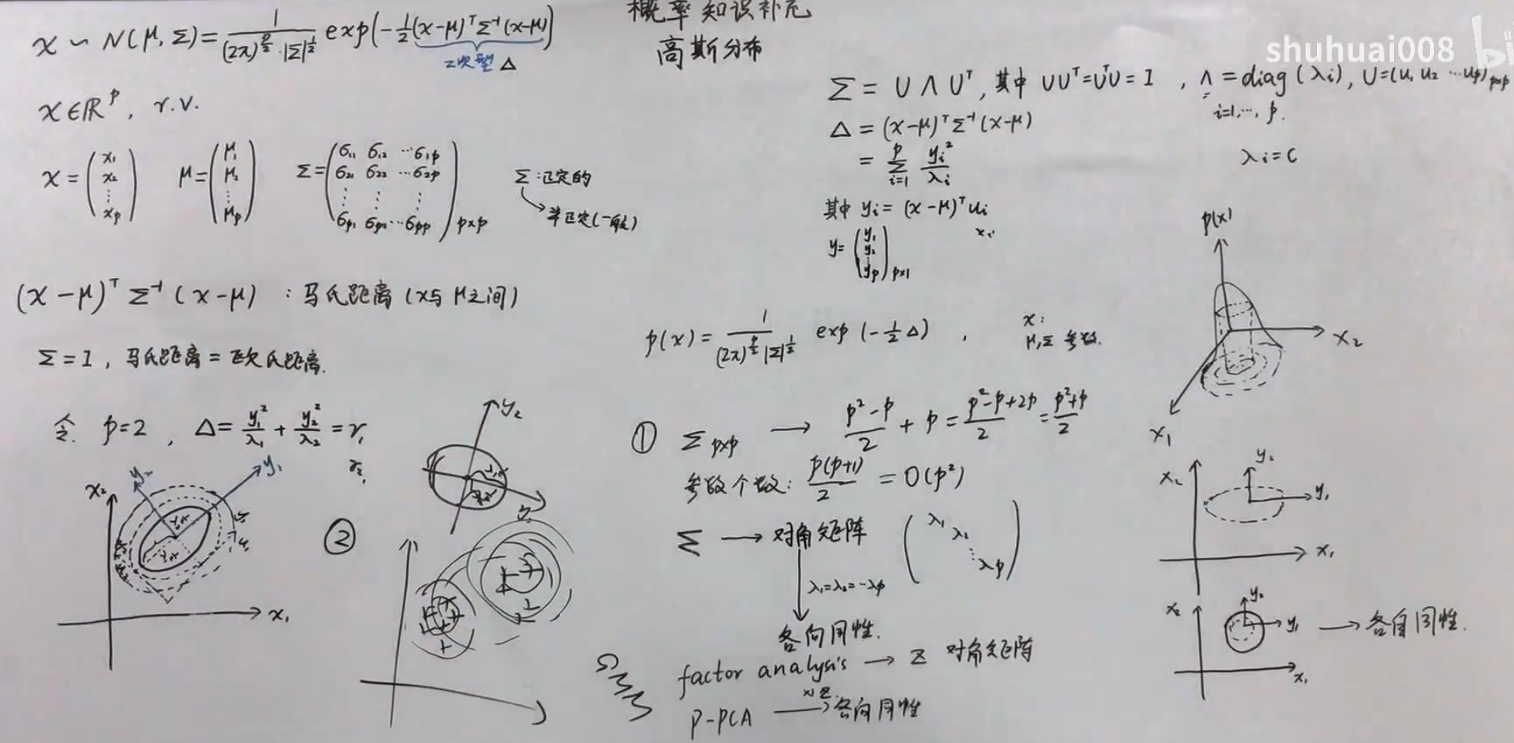 概率知识补充
高斯分布
shuhuai008 bi
x ~ N(μ, Σ) = 1/((2π)^{p/2}·|Σ|^{1/2}) exp(-1/2 (x-μ)^T Σ^{-1} (x-μ))
二次型 Δ
x∈ℝ^p, r.v.
x = (x₁ x₂ ⋮ x_p) μ = (μ₁ μ₂ ⋮ μ_p) Σ = (σ₁₁ σ₁₂ ⋯ σ₁p
σ₂₁ σ₂₂ ⋯ σ₂p
⋮ ⋮ ⋮
σp₁ σp₂ ⋯ σpp)_{p×p}
Σ:正定的
半正定(一般)
(x-μ)^T Σ^{-1} (x-μ) : 马氏距离 (x与μ之间)
Σ = I, 马氏距离 = 欧氏距离.
令. p=2, Δ = y₁²/λ₁ + y₂²/λ₂ = r₁
r₂
x₂ y₂ y₁
x₁
y₂
②
Σ = U Λ U^T, 其中 UU^T = U^T U = I, Λ = diag(λi), U = (u₁ u₂ ⋯ u_p)_{p×p}
i=1,⋯, p.
Δ = (x-μ)^T Σ^{-1} (x-μ)
= Σ_{i=1}^{p} yi²/λi
λi = c
其中 yi = (x-μ)^T ui
y = (y₁ y₂ ⋮ y_p)_{p×1}
p(x) = 1/((2π)^{p/2} |Σ|^{1/2}) exp(-1/2 Δ),
x:
μ,Σ 参数.
① Σ_{p×p} → (p²-p)/2 + p = (p²-p+2p)/2 = (p²+p)/2
参数个数: p(p+1)/2 = O(p²)
Σ → 对角矩阵 (λ₁ λ₂ ⋱ λp)
λ₁=λ₂=⋯λp
各向同性.
factor analysis → z 对角矩阵
p-PCA → 各向同性
p(x)
x₂
x₁
x₂ y₂ y₁
x₁
x₂ y₂ y₁ → 各向同性.
x₁